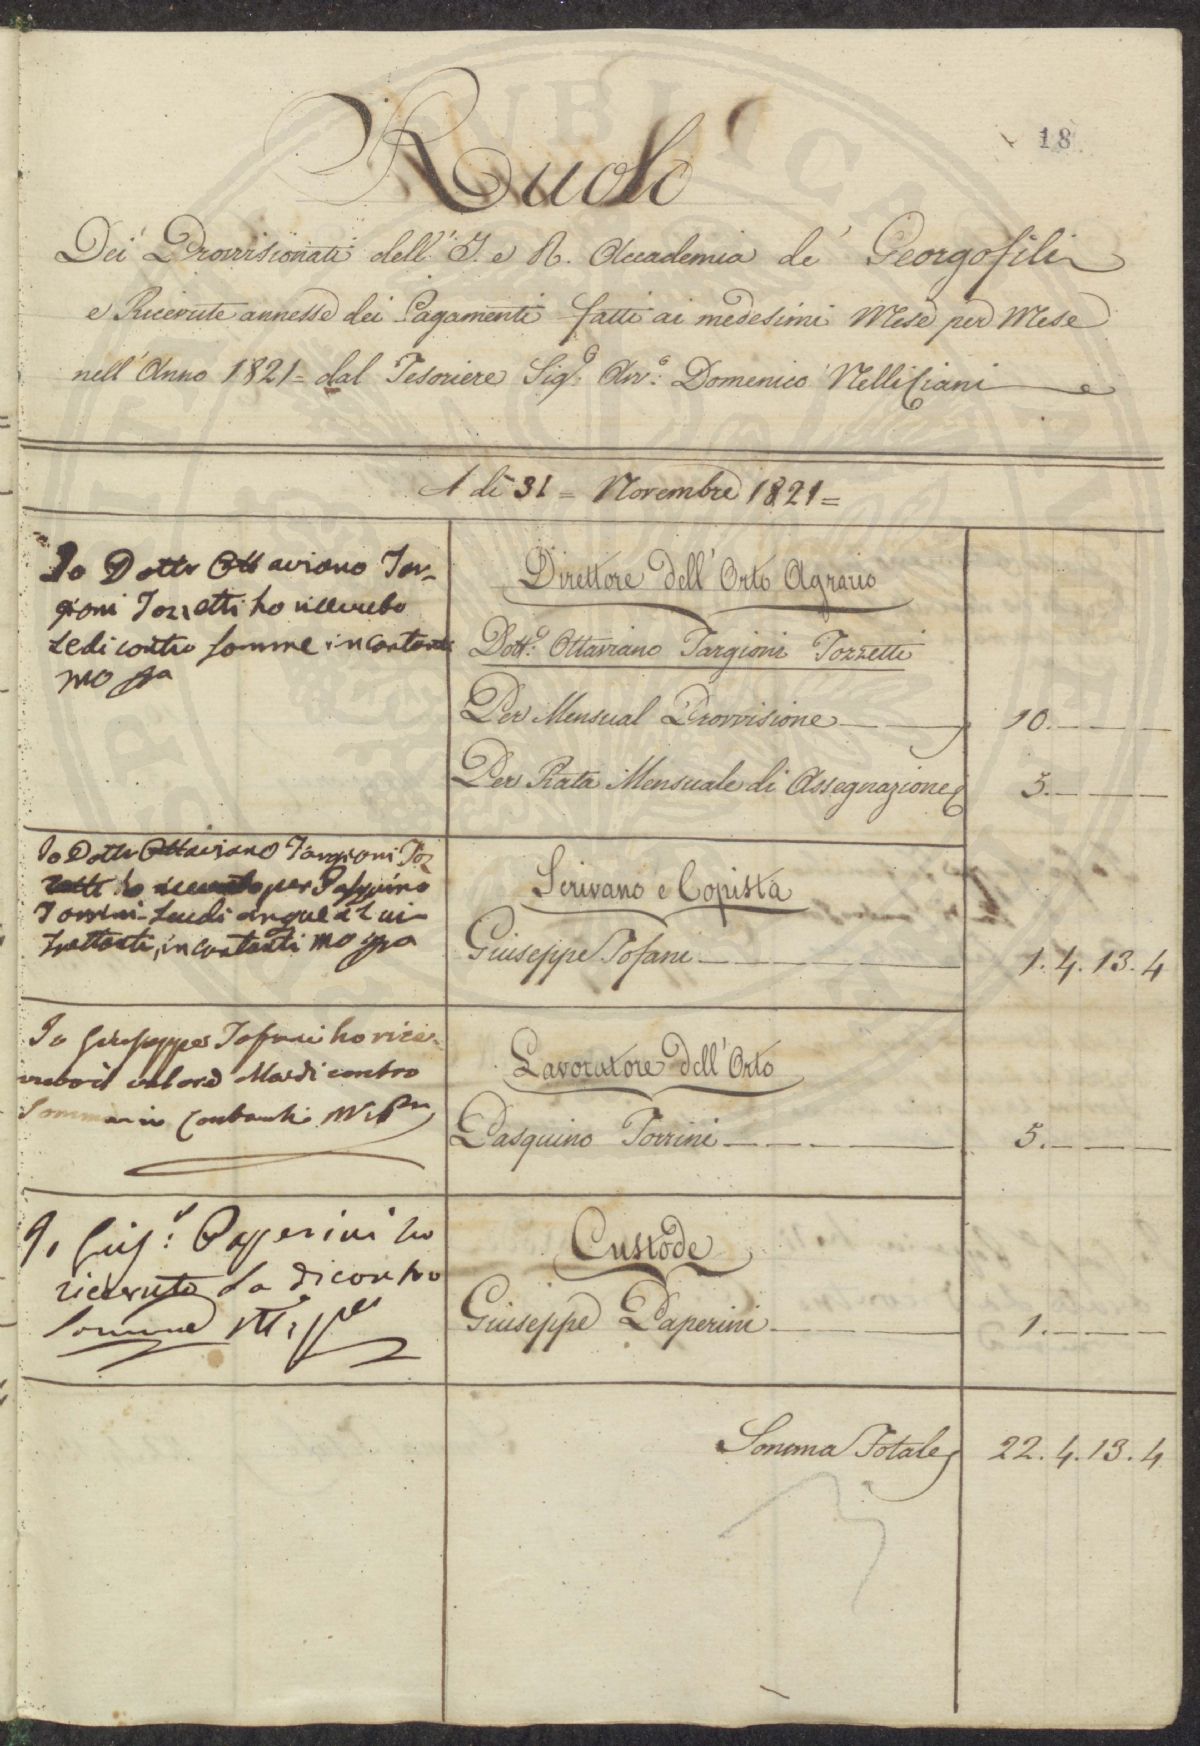 18
Ruolo
Dei Provvisionati dell' I. e R. Accademia de' Georgofili
e Ricevute annesse dei Pagamenti fatti ai medesimi Mese per Mese
nell' Anno 1821 = dal Tesoriere Sig.e Avv.o Domenico Nelli Ciani
A dì 31 = Novembre 1821 =
Io Dottr Ottaviano Tar-
gioni Tozzetti ho ricevuto
le di contro somme in contanti
mo ppa
Direttore dell' Orto Agrario
Dott.e Ottaviano Targioni Tozzetti
Per Mensual Provvisione 10. — — —
Per Rata Mensuale di Assegnazione 5. — — —
Io Dottr Ottaviano Targioni Toz
zetti ho ricevuto per Pasquino
Torrini Scudi cinque a Lui
spettanti, in contanti mo ppa
Scrivano e Copista
Giuseppe Tofani 1. 4. 13. 4
Io Giuseppe Tofani ho rice-
vuto il valore della di contro
Somma in Contanti
Lavoratore dell' Orto
Pasquino Torrini 5. — — —
Io Giuse: Papperini ho
ricevuto la di contro
Somma
Custode
Giuseppe Paperini 1. — — —
Somma Totale 22. 4. 13. 4